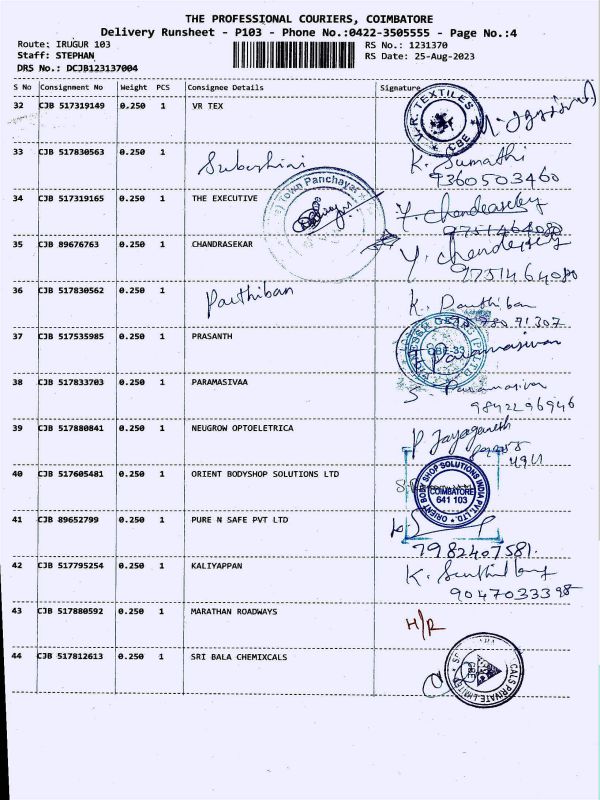 THE PROFESSIONAL COURIERS, COIMBATORE
Delivery Runsheet - P103 - Phone No.:0422-3505555 - Page No.:4
Route: IRUGUR 103 RS No.: 1231370
Staff: STEPHAN RS Date: 25-Aug-2023
DRS No.: DCJB123137004
S No Consignment No Weight PCS Consignee Details Signature
32 CJB 517319149 0.250 1 VR TEX
V.R. TEXTILES CBE
33 CJB 517830563 0.250 1 Subashini K. Sumathi
9360503460
Town Panchayat
34 CJB 517319165 0.250 1 THE EXECUTIVE Y. Chandrasekey
9751464080
35 CJB 89676763 0.250 1 CHANDRASEKAR Y. Chandrasekey
9751464080
36 CJB 517830562 0.250 1 Parthiban K. Parthiban
37 CJB 517535985 0.250 1 PRASANTH Paramasivan
CBE-33
38 CJB 517833703 0.250 1 PARAMASIVAA S. Paramasivan
9842296946
39 CJB 517880841 0.250 1 NEUGROW OPTOELETRICA P Jayaganesh
40 CJB 517605481 0.250 1 ORIENT BODYSHOP SOLUTIONS LTD
ORIENT BODY SHOP SOLUTIONS INDIA PVT. LTD.
COIMBATORE
641 103
41 CJB 89652799 0.250 1 PURE N SAFE PVT LTD
7982407581.
42 CJB 517795254 0.250 1 KALIYAPPAN K. Senthil
9047033398
43 CJB 517880592 0.250 1 MARATHAN ROADWAYS H/R
44 CJB 517812613 0.250 1 SRI BALA CHEMIXCALS
CALS PRIVATE LIMITED
CBE